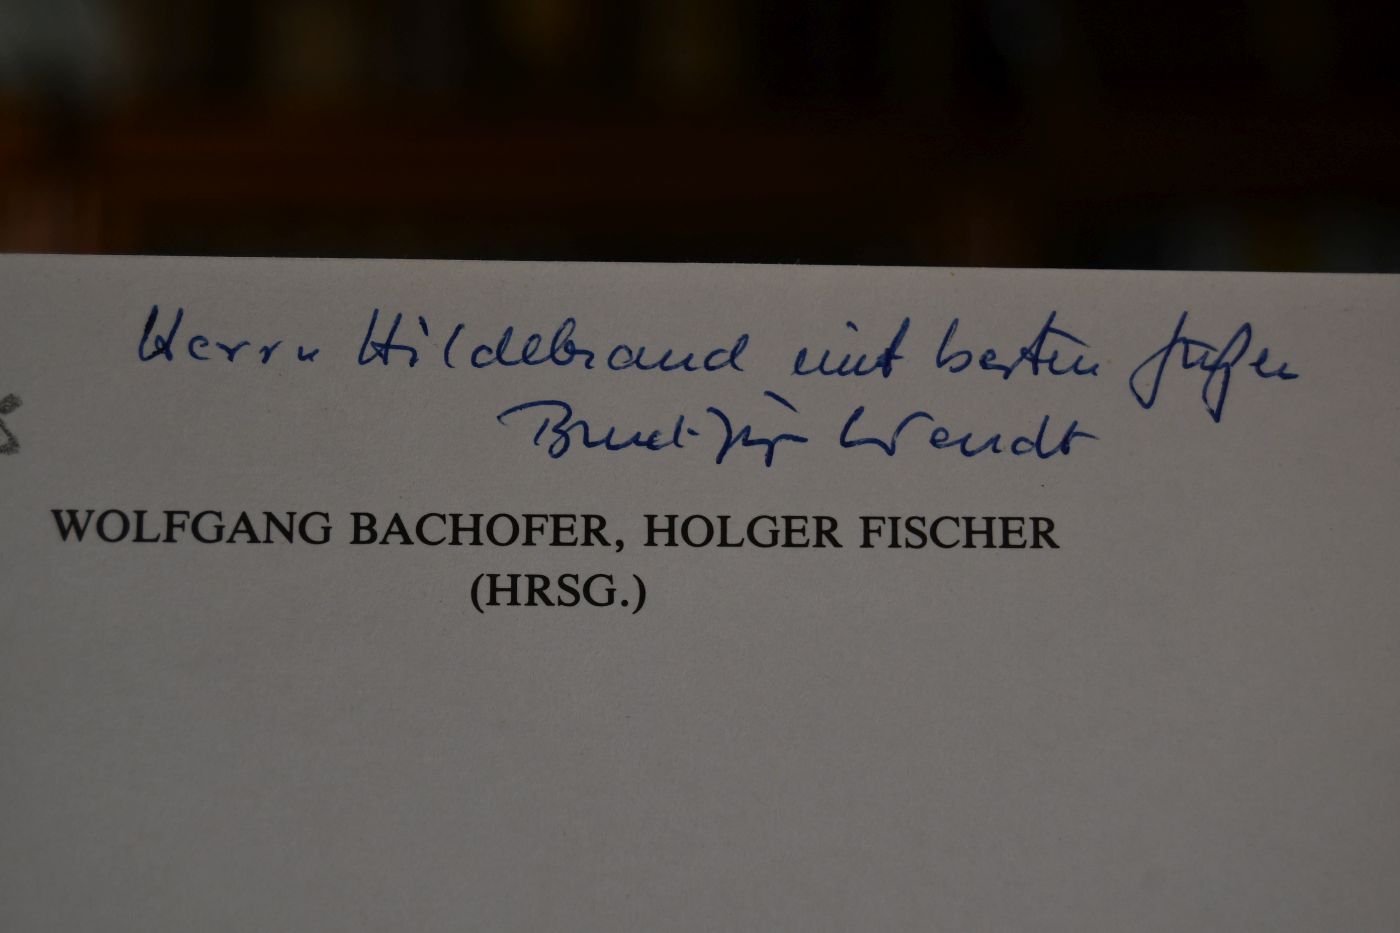 Herrn Hildebrand mit besten Grüßen
Bernd-Jürgen Wendt
WOLFGANG BACHOFER, HOLGER FISCHER
(HRSG.)